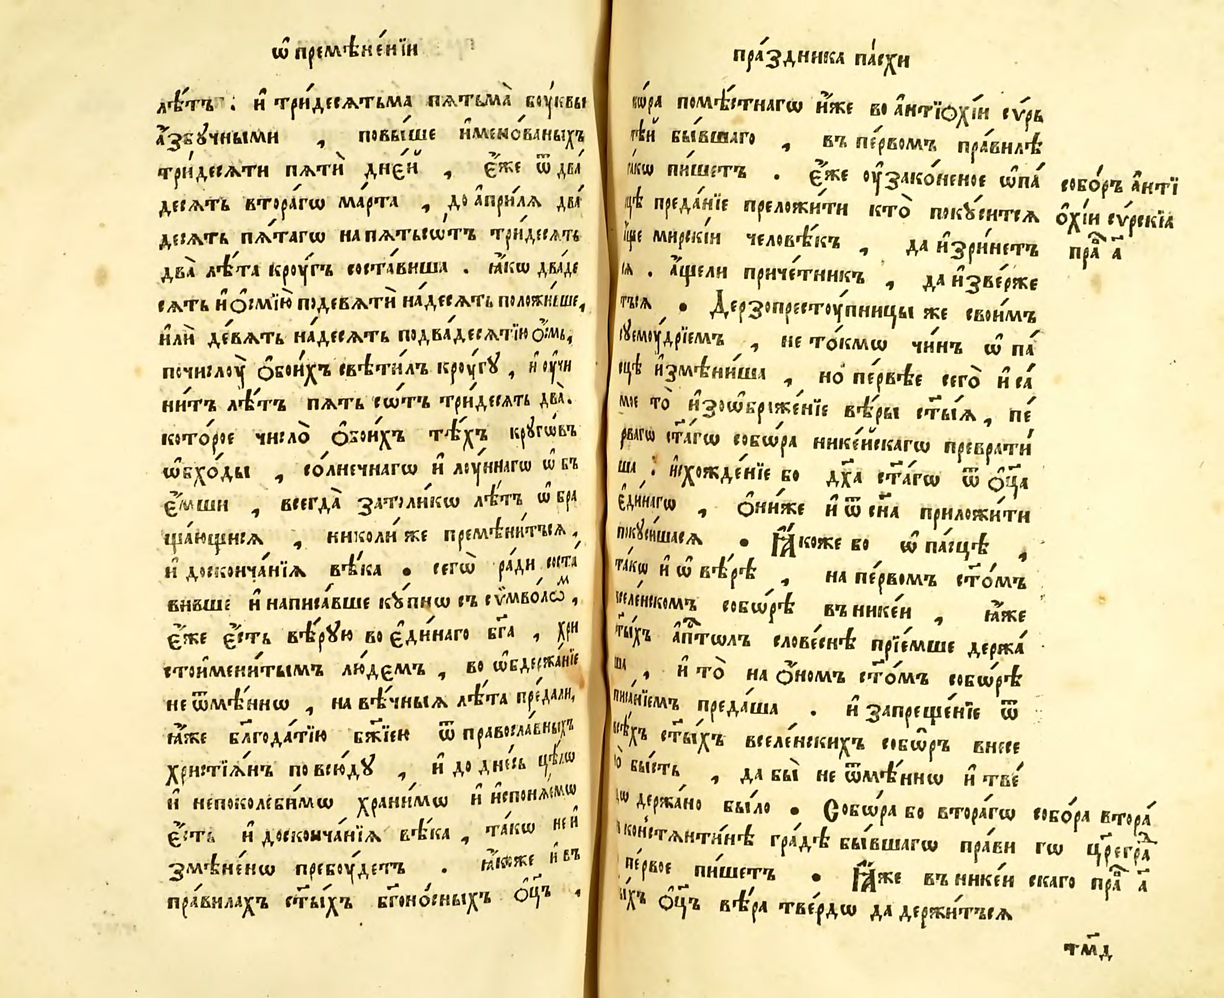 ѡ҆ премѣне́нїи
лѣ́тъ . и҆ три́десѧтьма пѧтьма̀ бꙋ́квы
а҆́збꙋчными , повы́ше и҆менѡ́ваныхъ
три́десѧти пѧтѝ дне́й , є҆́же ѿ два́
десѧть втора́гѡ ма́рта , до а҆прі́лѧ два́
десѧть пѧ́тагѡ на пѧ́тьсѡ́тъ три́десѧть
два̀ лѣ́та крꙋ́гъ соста́виша . ꙗ҆́кѡ два́де
сѧть и҆ ѻ҆́смїю подевѧтѝ на́десѧть положи́вше,
и҆лѝ де́вѧть на́десѧть подва́десѧтїю ѻ҆́смь,
почислꙋ̀ ѻ҆бои́хъ свѣти́лъ крꙋ́гꙋ , и҆ ᲂу҆чи
ни́тъ лѣ́тъ пѧ́ть сѡ́тъ три́десѧть два̀.
кото́рое число̀ ѻ҆бои́хъ тѣ́хъ крꙋгѡ́въ
ѡ҆бхо́ды , со́лнечнагѡ и҆ лꙋ́ннагѡ ѡ҆бъ
є҆́мши , всегда̀ за толи́кѡ лѣ́тъ ѡ҆бра
ща́ющисѧ , николи́же премѣни́тьсѧ,
и҆ до сконча́нїѧ вѣ́ка . сегѡ̀ ра́ди соста́
вивше и҆ написа́вше кꙋ́пнѡ съ сѷ́мволѡⷨ ,
є҆́же є҆́сть вѣ́рꙋю во є҆ди́наго бг҃а , хри
стоимени́тымъ лю́демъ , во ѡ҆бдержа́нїе
не ѿмѣ́ннѡ , на вѣ́чныѧ лѣ́та пре́дали,
ꙗ҆́же бл҃года́тїю бж҃їею ѿ правосла́вныхъ
христїѧ́нъ повсю́дꙋ , и҆ до дне́сь цѣ́лѡ
и҆ непоколеби́мѡ храни́мѡ и҆ и҆сполнѧ́емѡ
є҆́сть и҆ до сконча́нїѧ вѣ́ка , та́кѡ не и҆
змѣ́ненѡ пребꙋ́детъ . ꙗ҆́коже и҆ въ
пра́вилахъ ст҃ы́хъ бг҃оно́сныхъ ѻ҆ц҃ъ ,
пра́здника па́схи
бѡ́ра помѣ́стнагѡ и҆́же во а҆нтїѻхі́и сѵ́рь
тѣ́й бы́вшаго , въ пе́рвомъ пра́вилѣ
та́кѡ пи́шетъ . є҆́же ᲂу҆зако́неное ѡ҆па́
щѣ преда́нїе преложи́ти кто̀ покꙋси́тсѧ
а҆́ще мирскі́й человѣ́къ , да и҆зри́нетъ
сѧ . а҆́щели приче́тникъ , да и҆зве́рже
тьсѧ . Дерзопрестꙋ́пницы же свои́мъ
сꙋемꙋ́дрїемъ , не то́кмѡ чи́нъ ѡ҆ па́
сцѣ и҆змѣни́ша , но̀ пе́рвѣе сего̀ и҆ са́
мое то̀ и҆зоѡ҆браже́нїе вѣ́ры ст҃ы́ѧ , пе́
рвагѡ ст҃а́гѡ собѡ́ра нике́йскагѡ преврати́
ша . и҆схожде́нїе бо дх҃а ст҃а́гѡ ѿ ѻ҆ц҃а
є҆ди́нагѡ , ѻ҆ни́же и҆ ѿ сн҃а приложи́ти
покꙋси́шасѧ . Ꙗ҆́коже бо ѡ҆ па́сцѣ ,
та́кѡ и҆ ѡ҆ вѣ́рѣ , на пе́рвомъ ст҃о́мъ
вселе́нскомъ собѡ́рѣ въ нике́и , ꙗ҆́же
ст҃ы́хъ а҆пⷭ҇тѡлъ слове́снѣ прїе́мше держа́
ша , и҆ то̀ на ѻ҆́номъ ст҃о́мъ собѡ́рѣ
писа́нїемъ преда́ша . и҆ запреще́нїе ѿ
всѣ́хъ ст҃ы́хъ вселе́нскихъ собѡ́ръ внесе
но̀ бы́сть , да бы̀ не ѿмѣ́ннѡ и҆ тве́
рдѡ держа́но бы́ло . Собѡ́ра бо втора́гѡ
в констѧнти́нѣ гра́дѣ бы́вшагѡ пра́ви
пе́рвое пи́шетъ . Ꙗ҆́же въ нике́и
и́хъ ѻ҆ц҃ъ вѣ́ра тве́рдѡ да держи́тьсѧ
собо́ръ а҆нті
ѻ҆хі́и сѵ́рскїа
праⷡ҇ а҃
собо́ра втора́
гѡ цр҃егра
скаго праⷡ҇ а҃
тм҃д